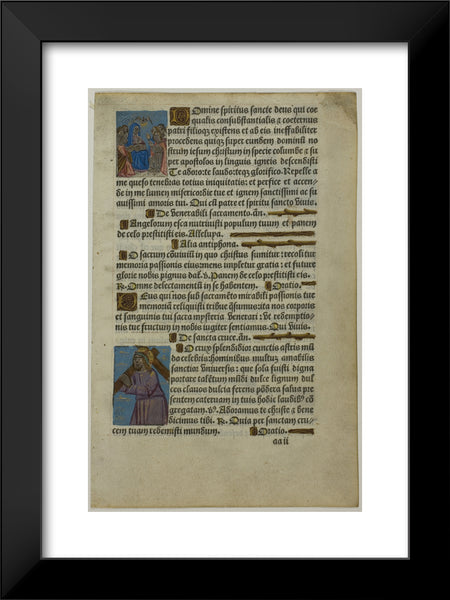 Omine spiritus sancte deus qui coe
qualis consubstantialis & coeternus
patri filioq; existens et ab eis ineffabiliter
procedens quiq; super eundem dominū no
strum iesum christum in specie columbe & su
per apostolos in linguis igneis descendisti
Te adoro: te laudo: teq; glorifico. Repelle a
me queso tenebras totius iniquitatis: et perfice et accen
de in me lumen misericordie tue et ignem sanctissimi ac su
auissimi amoris tui. Qui cū patre et spiritu sancto Viuis.
De Venerabili sacramento. añ.
Angelorum esca nutriuisti populum tuum et panem
de celo prestitisti eis. Alleluya.
Alia antiphona.
O sacrum cōuiuiū in quo christus sumitur: recolitur
memoria passionis eius: mens impletur gratia: et future
glorie nobis pignus dat. ℣. Panem de celo prestitisti eis.
℟. Omne delectamentū in se habentem. Oratio.
Eus qui nos sub sacramēto mirabili passionis tue
memoriā reliquisti tribue q̄sumus: ita nos corporis
et sanguinis tui sacra mysteria Venerari: Vt redemptio
nis tue fructum in nobis iugiter sentiamus. Qui Viuis.
De sancta cruce. añ.
O crux splendidior cunctis astris mū
do celebris: hominibus multū amabilis
sanctior Vniuersis: que sola fuisti digna
portare talētum mūdi dulce lignum dul
ces clauos dulcia ferens pōdera salua pre
sentem cateruam in tuis hodie laudibꝰ cō
gregatam. ℣. Adoramus te christe & bene
dicimus tibi. ℟. Quia per sanctam cru
cem tuam redemisti mundum. Oratio.
aa ii